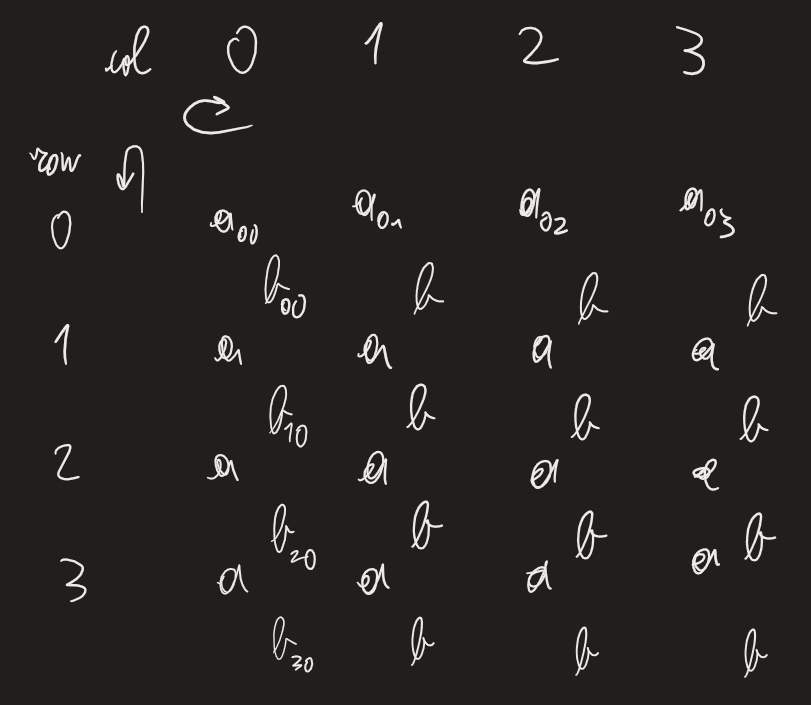 col 0 1 2 3
row
0 a00 a01 a02 a03
b00 b b b
1 a a a a
b10 b b b
2 a a a a
b20 b b b
3 a a a a
b30 b b b